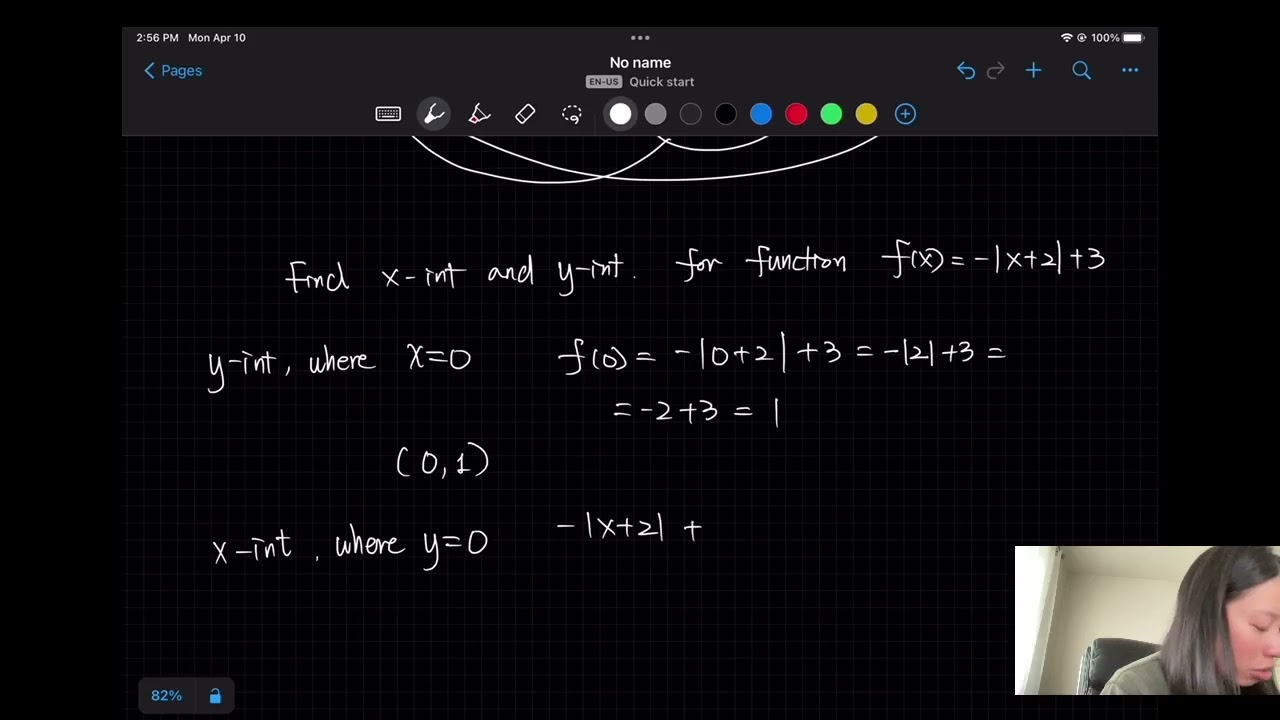 2:56 PM Mon Apr 10
100%
Pages
No name
EN-US Quick start
Find x-int and y-int. for function f(x) = -|x+2|+3
y-int, where x=0 f(0) = -|0+2|+3 = -|2|+3 =
= -2+3 = 1
(0,1)
x-int, where y=0 -|x+2| +
82%